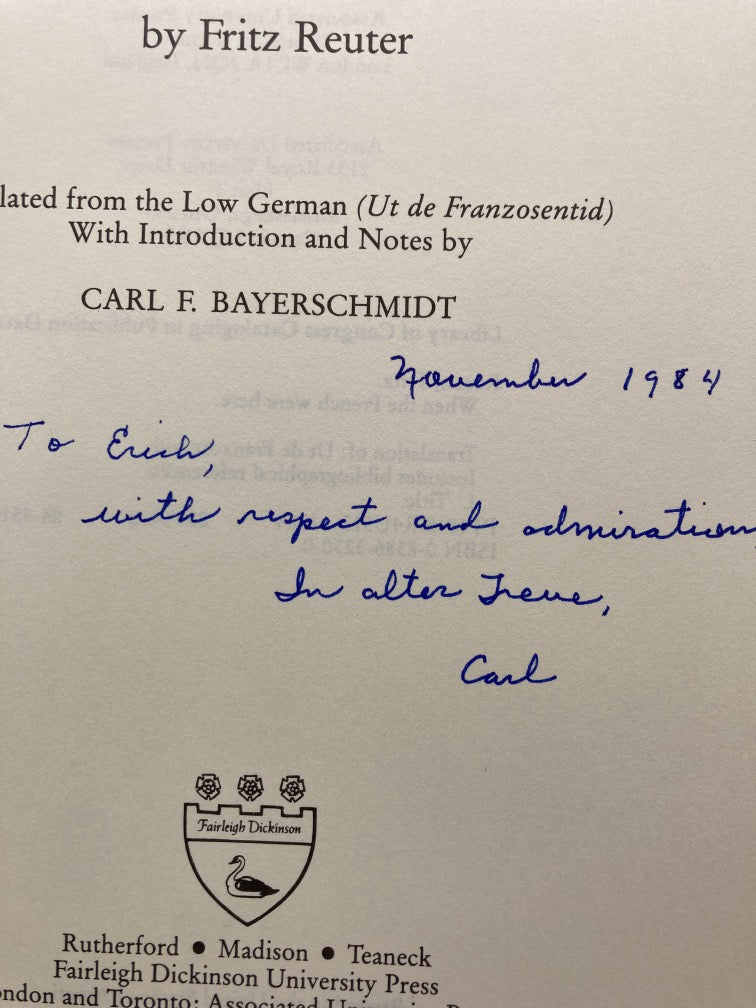 by Fritz Reuter
lated from the Low German (Ut de Franzosentid)
With Introduction and Notes by
CARL F. BAYERSCHMIDT
November 1984
To Erich,
with respect and admiration
In alter Treue,
Carl
Fairleigh Dickinson
Rutherford ● Madison ● Teaneck
Fairleigh Dickinson University Press
ondon and Toronto: Associated